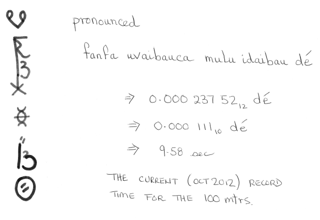 pronounced
fanfa uvaibauca mulu idaibau dé
⇒ 0.000 237 52₁₂ dé
⇒ 0.000 111₁₀ dé
⇒ 9.58 sec
THE CURRENT (OCT 2012) RECORD
TIME FOR THE 100 mtrs.